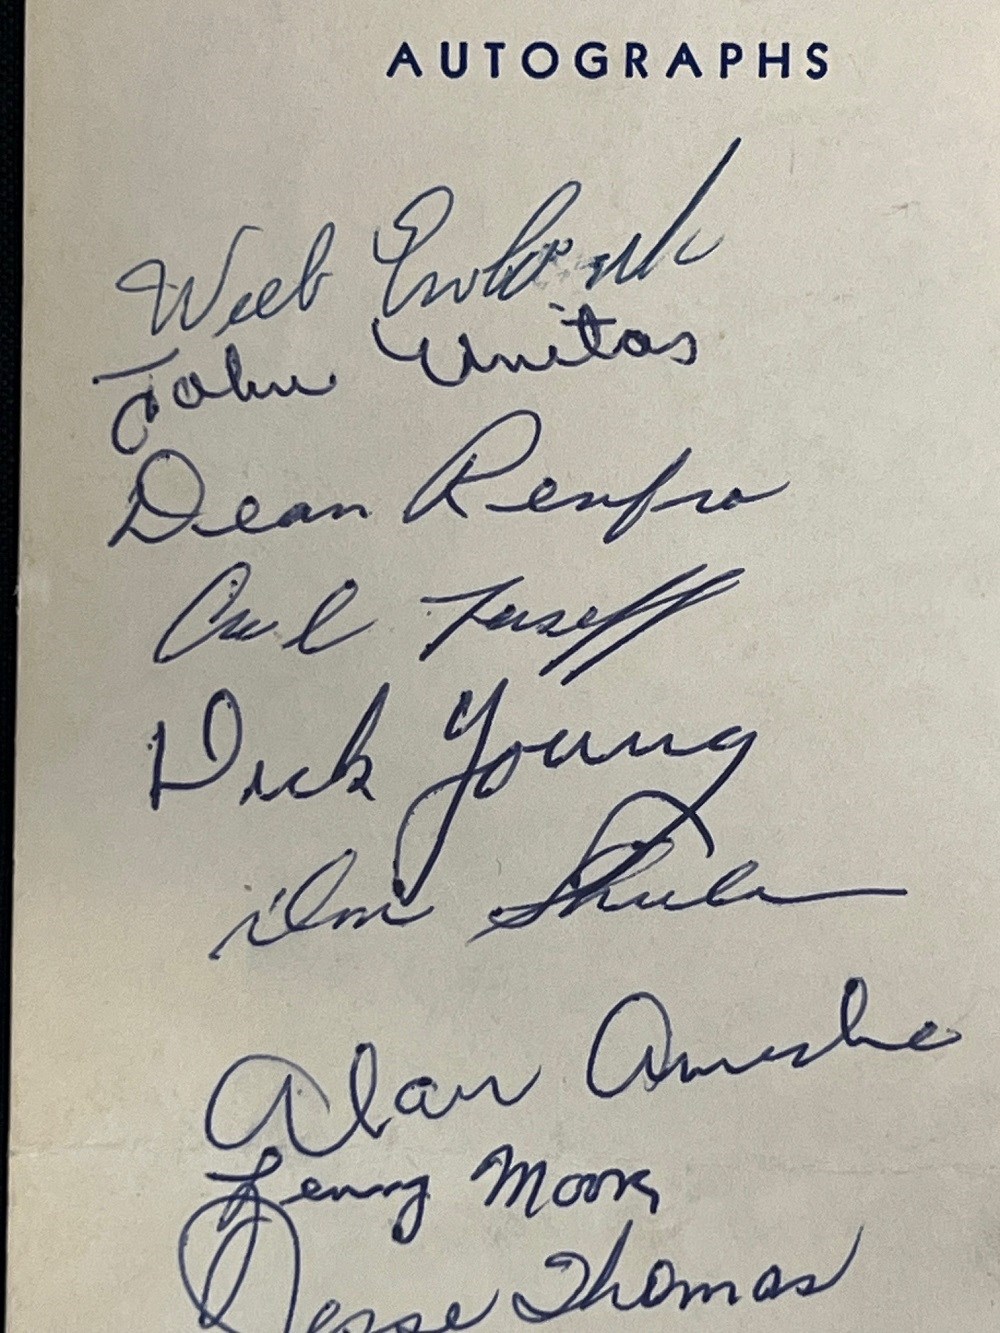 AUTOGRAPHS
Weeb Ewbank
John Unitas
Dean Renfro
Carl Taseff
Dick Young
Don Shula
Alan Ameche
Lenny Moore
Jesse Thomas